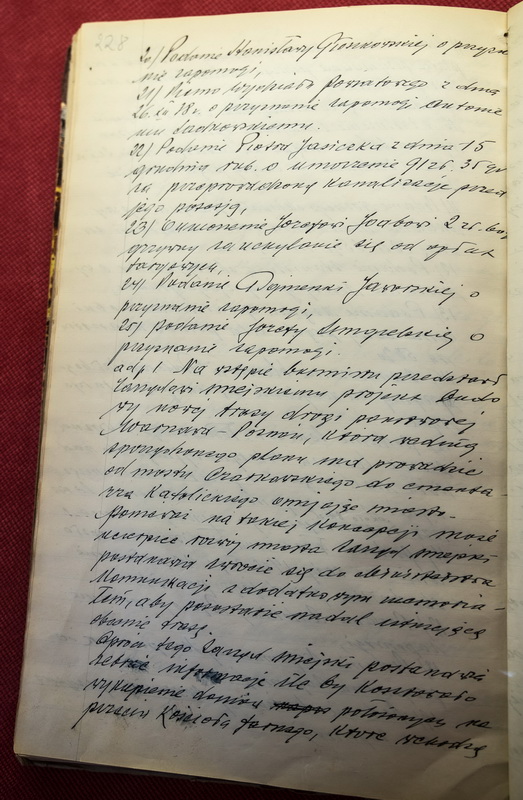 228
20) Podanie Stanisławy Gionkowskiej o przyzna
nie zapomogi,
21) Pismo Wydziału Powiatowego z dnia
26.XI 38r. o przyznanie zapomogi Antonie
mu Sadkowskiemu.
22) Podanie Piotra Jasiczka z dnia 15
grudnia rub. o umorzenie 91 zł. 35 gr
za przeprowadzoną kanalizację przed
jego posesją,
23) Umorzenie Józefowi 2 zł.
grzywny za uchylanie się od opłat
targowych,
24) Podanie Jaworskiej o
przyznanie zapomogi,
25) Podanie Józefy o
przyznanie zapomogi.
ad/1 Na wstępie burmistrz przedstawił
Zarządowi Miejskiemu projekt budo
wy nowej trasy drogi państwowej
Warszawa - Poznań, która według
sporządzonego planu ma prowadzić
od mostu do cmenta-
rza Katolickiego omijając miasto.
Ponieważ na takiej koncepcji może
ucierpieć rozwój miasta Zarząd Miejski
postanawia zwrócić się do Ministerstwa
Komunikacji z dodatkowym memoria-
łem, aby pozostawić nadal istniejącą
obecnie trasę.
Oprócz tego Zarząd Miejski postanawia
zebrać informacje ile by kosztowało
wykupienie domów położonych na
przeciw Kościoła farnego, które wchodzą